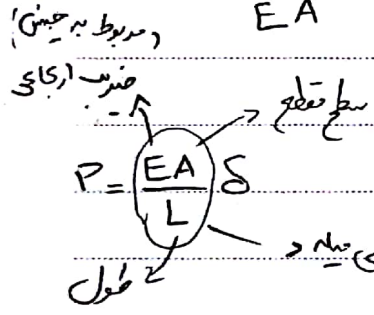 (مربوط به جنس)
EA
ضریب ارتجاعی
سطح مقطع
P = EA/L δ
میله
طول